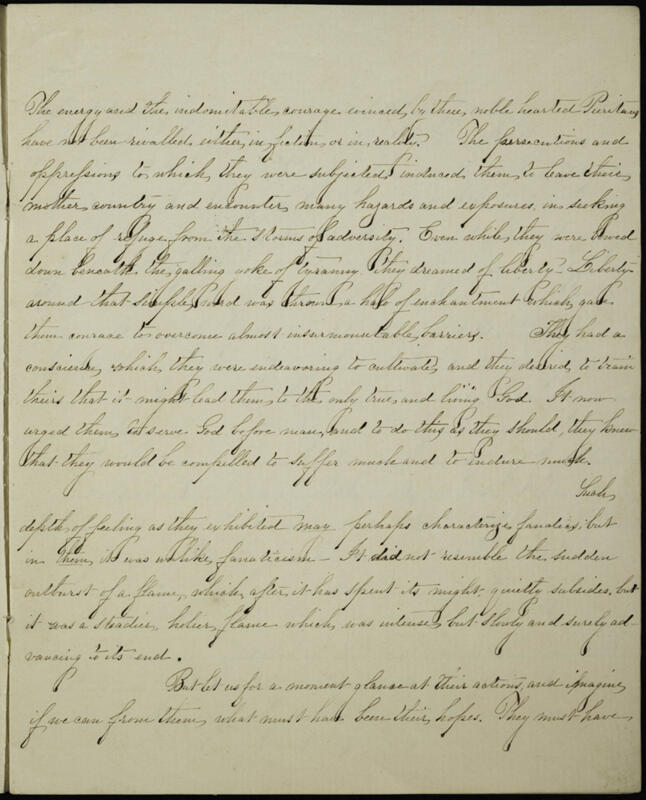 The energy and the indomitable courage evinced by these noble hearted Puritans
have not been rivalled either in fiction or in reality. The persecutions and
oppressions to which they were subjected induced them to leave their
mother country and encounter many hazards and exposures in seeking
a place of refuge from the storms of adversity. Even while they were bowed
down beneath the galling yoke of tyranny they dreamed of liberty - Liberty
around that simple word was thrown a halo of enchantment which gave
them courage to overcome almost insurmountable barriers. They had a
conscience which they were endeavoring to cultivate and they desired to train
theirs that it might lead them to the only true and living God. It now
urged them to serve God before man, and to do this as they should, they knew
that they would be compelled to suffer much and to endure much.
Such
depth of feeling as they exhibited may perhaps characterize fanatics, but
in them it was unlike fanaticism - It did not resemble the sudden
outburst of a flame, which after it has spent its might quietly subsides, but
it was a steadier, holier flame which was intense, but slowly and surely ad-
vancing to its end.
But let us for a moment glance at their actions, and imagine
if we can from them, what must have been their hopes. They must have